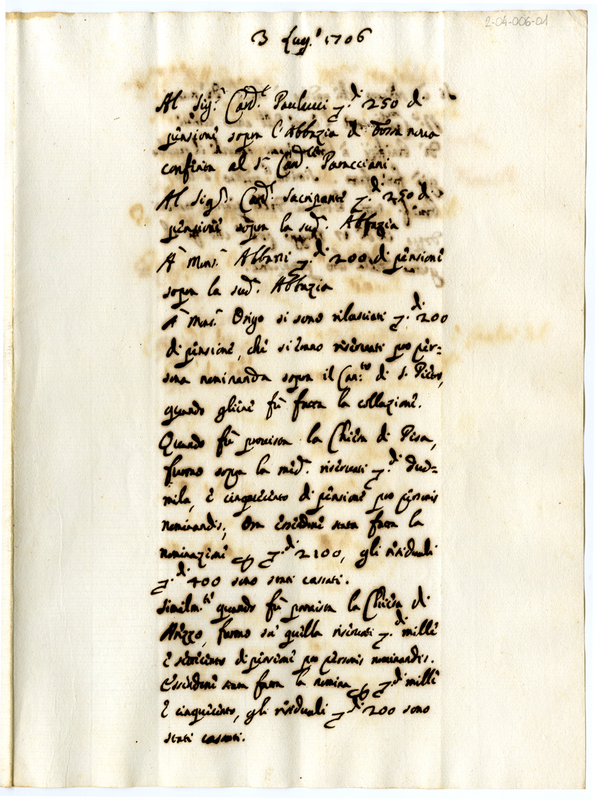 2-04-006-01
3 Lug.º 1706
Al Sig.r Card.l Paulucci z.di 250 di
pensione sopra l'Abbazia di
conferita al S.r Card.l Paracciani.
Al Sig.r Card.l Sacripante z.di 250 di
pensione sopra la sud.a Abbazia
A Mons.r z.di 200 di pensione
sopra la sud.a Abbazia
A Mons.r Origo si sono rilasciati z.di 200
di pensione, che si erano riservati pro per=
sona nominanda sopra il Can.to di S. Pietro,
quando gliene fù fatta la collazione.
Quando fù provista la Chiesa di Pisa,
furono sopra la med.a riservati z.di due=
mila, e cinquecento di pensione pro personis
nominandis, Ora essendone stata fatta la
nominazione z.di 2100, gli residuali
z.di 400 sono stati cassati.
Similm.te quando fù provista la Chiesa di
Arezzo, furono sù quella riservati z.di mille
e settecento di pensione pro personis nominandis.
Essendone stata fatta la nomina z.di mille
e cinquecento, gli residuali z.di 200 sono
stati cassati.